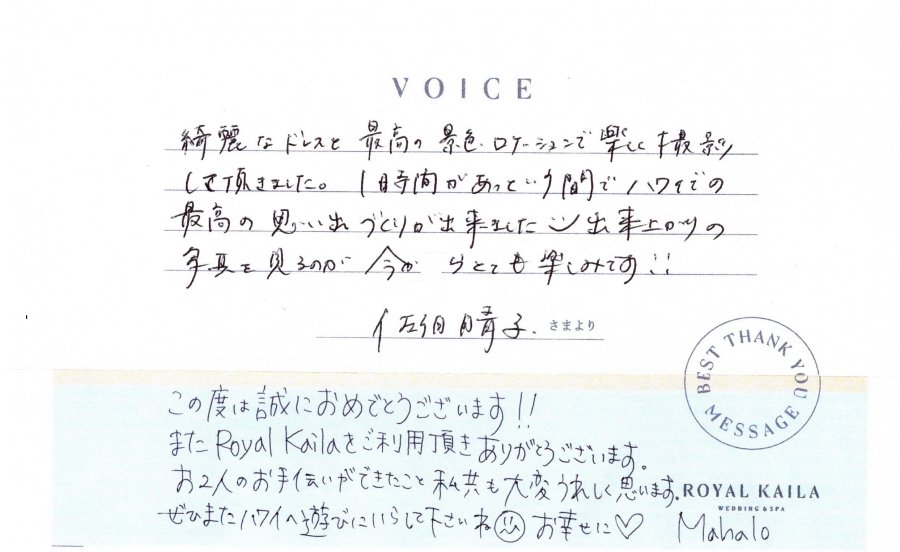 VOICE
綺麗なドレスと最高の景色、ロケーションで楽しく撮影
して頂きました。1時間があっという間でハワイでの
最高の思い出づくりが出来ました 出来上がりの
写真を見るのが今からとても楽しみです!!
晴子 さまより
BEST THANK YOU MESSAGE
この度は誠におめでとうございます!!
またRoyal Kailaをご利用頂きありがとうございます。
お2人のお手伝いができたこと私共も大変うれしく思います。
ROYAL KAILA
WEDDING & SPA
ぜひまたハワイへ遊びにいらして下さいね お幸せに♡ Mahalo